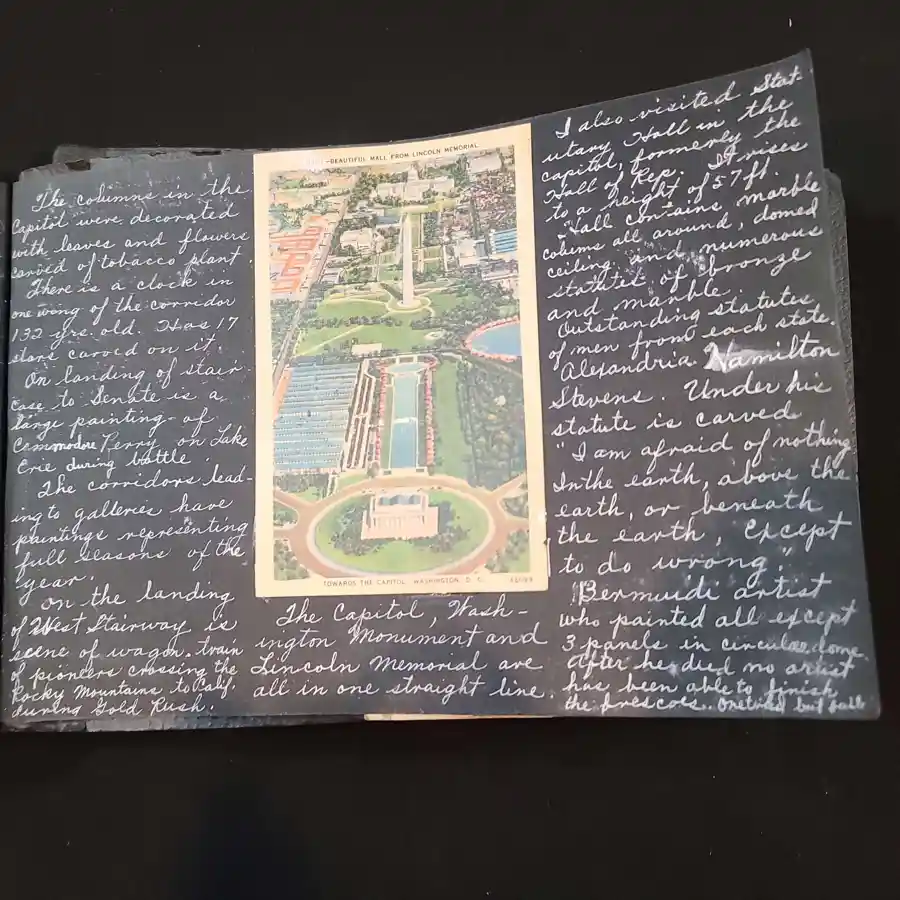 The columns in the
Capitol were decorated
with leaves and flowers
carved of tobacco plant
There is a clock in
one wing of the corridor
132 yrs. old. Has 17
stars carved on it.
On landing of stair
case to Senate is a
large painting of
Commodore Perry on Lake
Erie during battle.
The corridors lead-
ing to galleries have
paintings representing
full seasons of the
year.
On the landing
of West Stairway is
scene of wagon train
of pioneers crossing the
Rocky Mountains to Calif.
during Gold Rush.
-BEAUTIFUL MALL FROM LINCOLN MEMORIAL
TOWARDS THE CAPITOL, WASHINGTON, D. C.
The Capitol, Wash-
ington Monument and
Lincoln Memorial are
all in one straight line.
I also visited Stat-
utary Hall in the
capitol, formerly the
Hall of Rep. It rises
to a height of 57 ft.
Hall contains marble
colums all around, domed
ceiling and numerous
statutes of bronze
and marble.
Outstanding statutes
of men from each state.
Alexandria Hamilton
Stevens. Under his
statute is carved
"I am afraid of nothing
In the earth, above the
earth, or beneath
the earth, Except
to do wrong."
Bermuidi artist
who painted all except
3 panels in circular dome.
After he died no artist
has been able to finish
the frescoes. One tried but